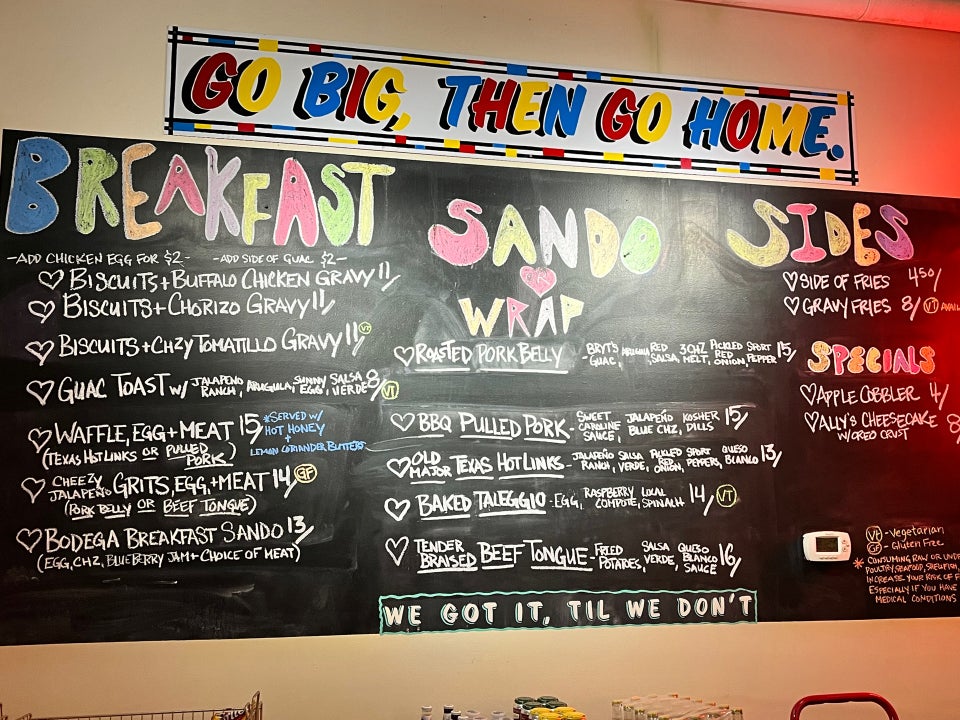 GO BIG, THEN GO HOME.
BREAKFAST
-ADD CHICKEN EGG FOR $2- -ADD SIDE OF GUAC $2-
BISCUITS + BUFFALO CHICKEN GRAVY 11/
BISCUITS + CHORIZO GRAVY 11/
BISCUITS + CHZY TOMATILLO GRAVY 11/ VT
GUAC TOAST W/ JALAPEÑO RANCH, ARUGULA, SUNNY EGGS, SALSA VERDE 8/ VT
WAFFLE, EGG + MEAT 15/
(TEXAS HOT LINKS OR PULLED PORK)
*SERVED W/
HOT HONEY
+
LEMON CORIANDER BUTTERS
CHEEZY JALAPEÑO GRITS, EGG, + MEAT 14/ GF
(PORK BELLY OR BEEF TONGUE)
BODEGA BREAKFAST SANDO 13/
(EGG, CHZ, BLUEBERRY JAM + CHOICE OF MEAT)
SANDO
OR
WRAP
ROASTED PORK BELLY - BRYT'S GUAC, ARUGULA, RED SALSA, 3 CHZ MELT, PICKLED RED ONION, SPORT PEPPER 15/
BBQ PULLED PORK - SWEET CAROLINE SAUCE, JALAPEÑO BLUE CHZ, KOSHER DILLS 15/
OLD MAJOR TEXAS HOT LINKS - JALAPEÑO RANCH, SALSA VERDE, PICKLED RED ONION, SPORT PEPPERS, QUESO BLANCO 13/
BAKED TALEGGIO - EGG, RASPBERRY COMPUTE, LOCAL SPINALH 14/ VT
TENDER BRAISED BEEF TONGUE - FRIED POTATOES, SALSA VERDE, QUESO BLANCO SAUCE 16/
WE GOT IT, TIL WE DON'T
SIDES
SIDE OF FRIES 4.50/
GRAVY FRIES 8/ VT AVAIL
SPECIALS
APPLE COBBLER 4/
ALLY'S CHEESECAKE 8
W/OREO CRUST
VT - Vegetarian
GF - Gluten Free
* CONSUMING RAW OR UNDE
POULTRY, SEAFOOD, SHELLFISH,
INCREASE YOUR RISK OF F
ESPECIALLY IF YOU HAVE
MEDICAL CONDITIONS